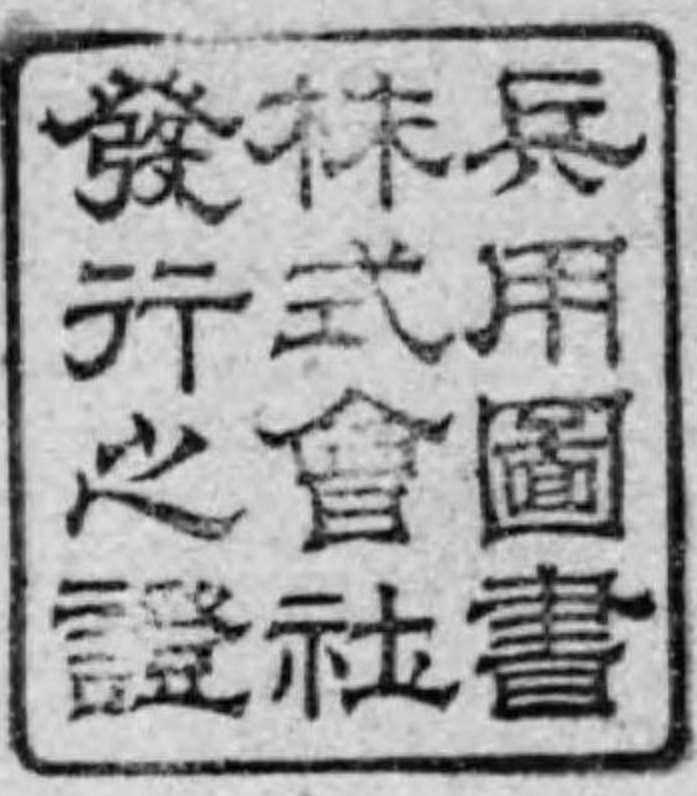 兵用圖書
株式會社
發行之證